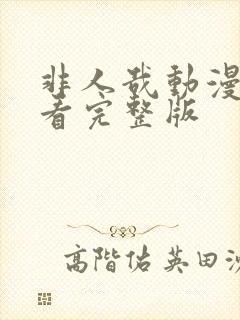 非人哉動漫
看完整版
高階佑英田